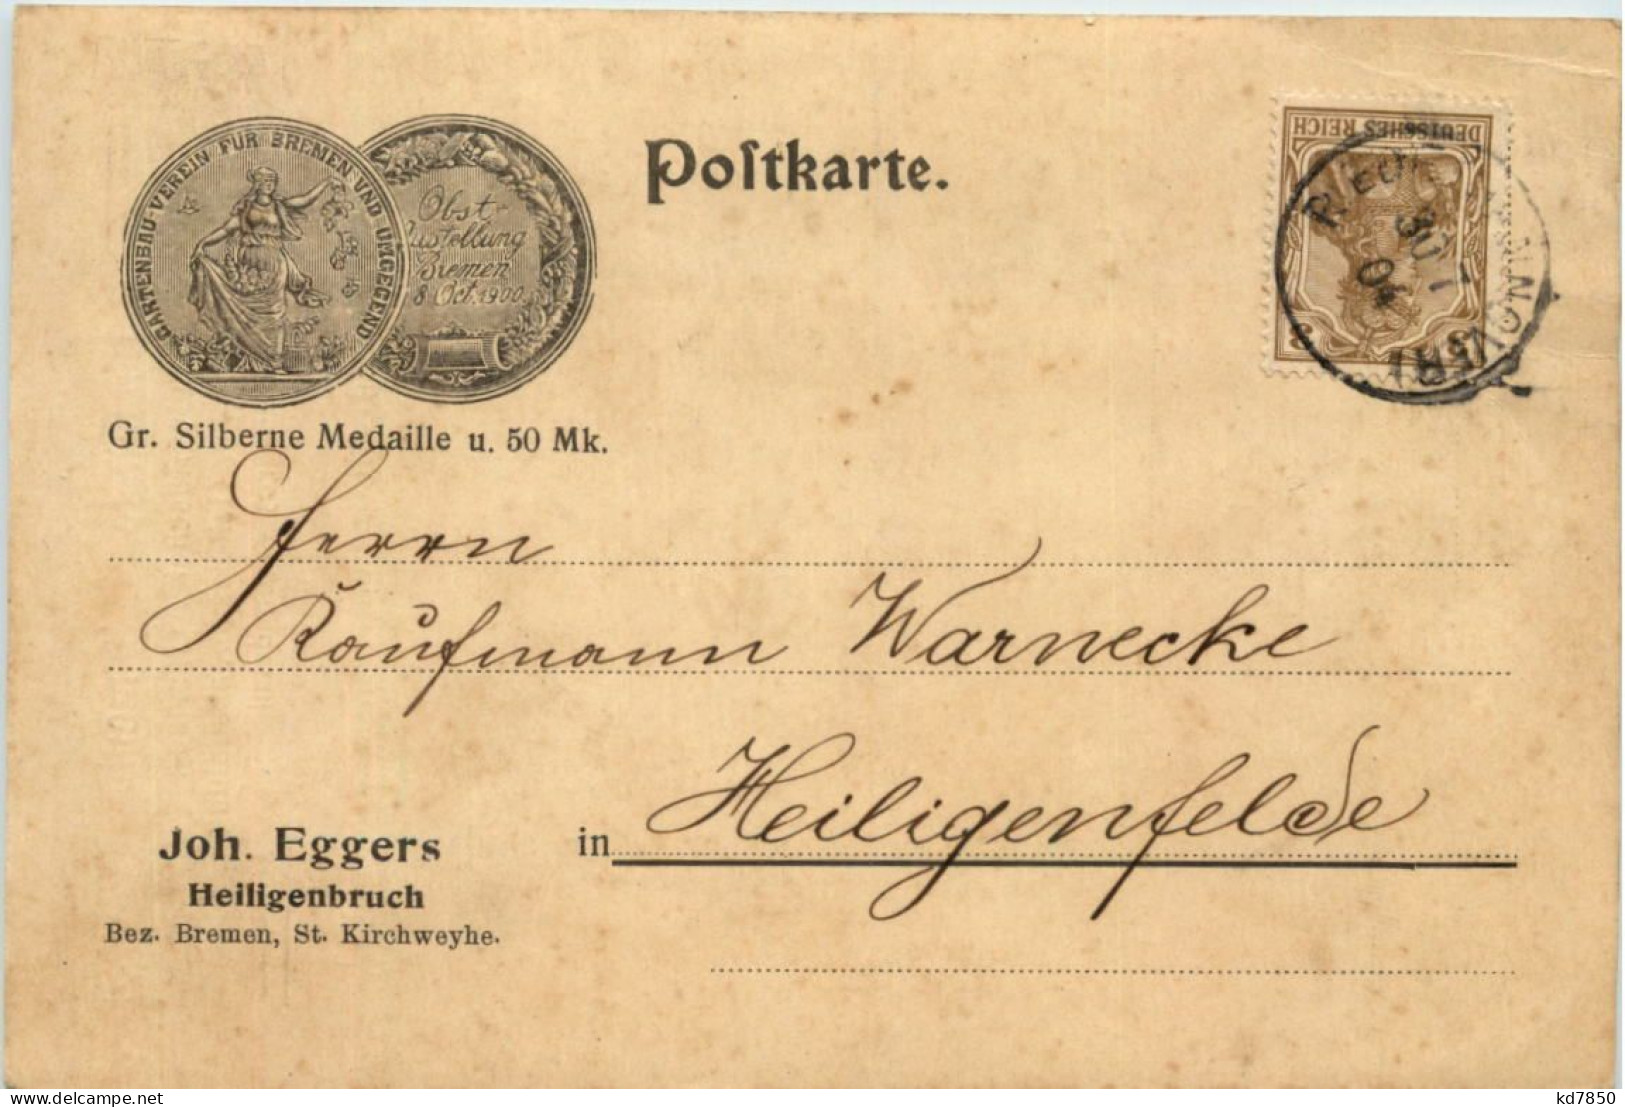 GARTENBAU-VEREIN FÜR BREMEN UND UMGEGEND
Obst-
Ausstellung
Bremen
8 Oct. 1900
Gr. Silberne Medaille u. 50 Mk.
Postkarte.
DEUTSCHES REICH
3
30
04
Herrn
Kaufmann Warnecke
in Heiligenfelde
Joh. Eggers
Heiligenbruch
Bez. Bremen, St. Kirchweyhe.
kd7850